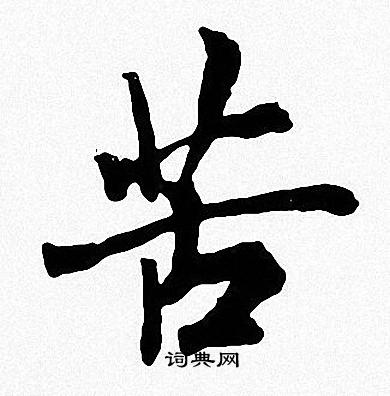 苦
词典网